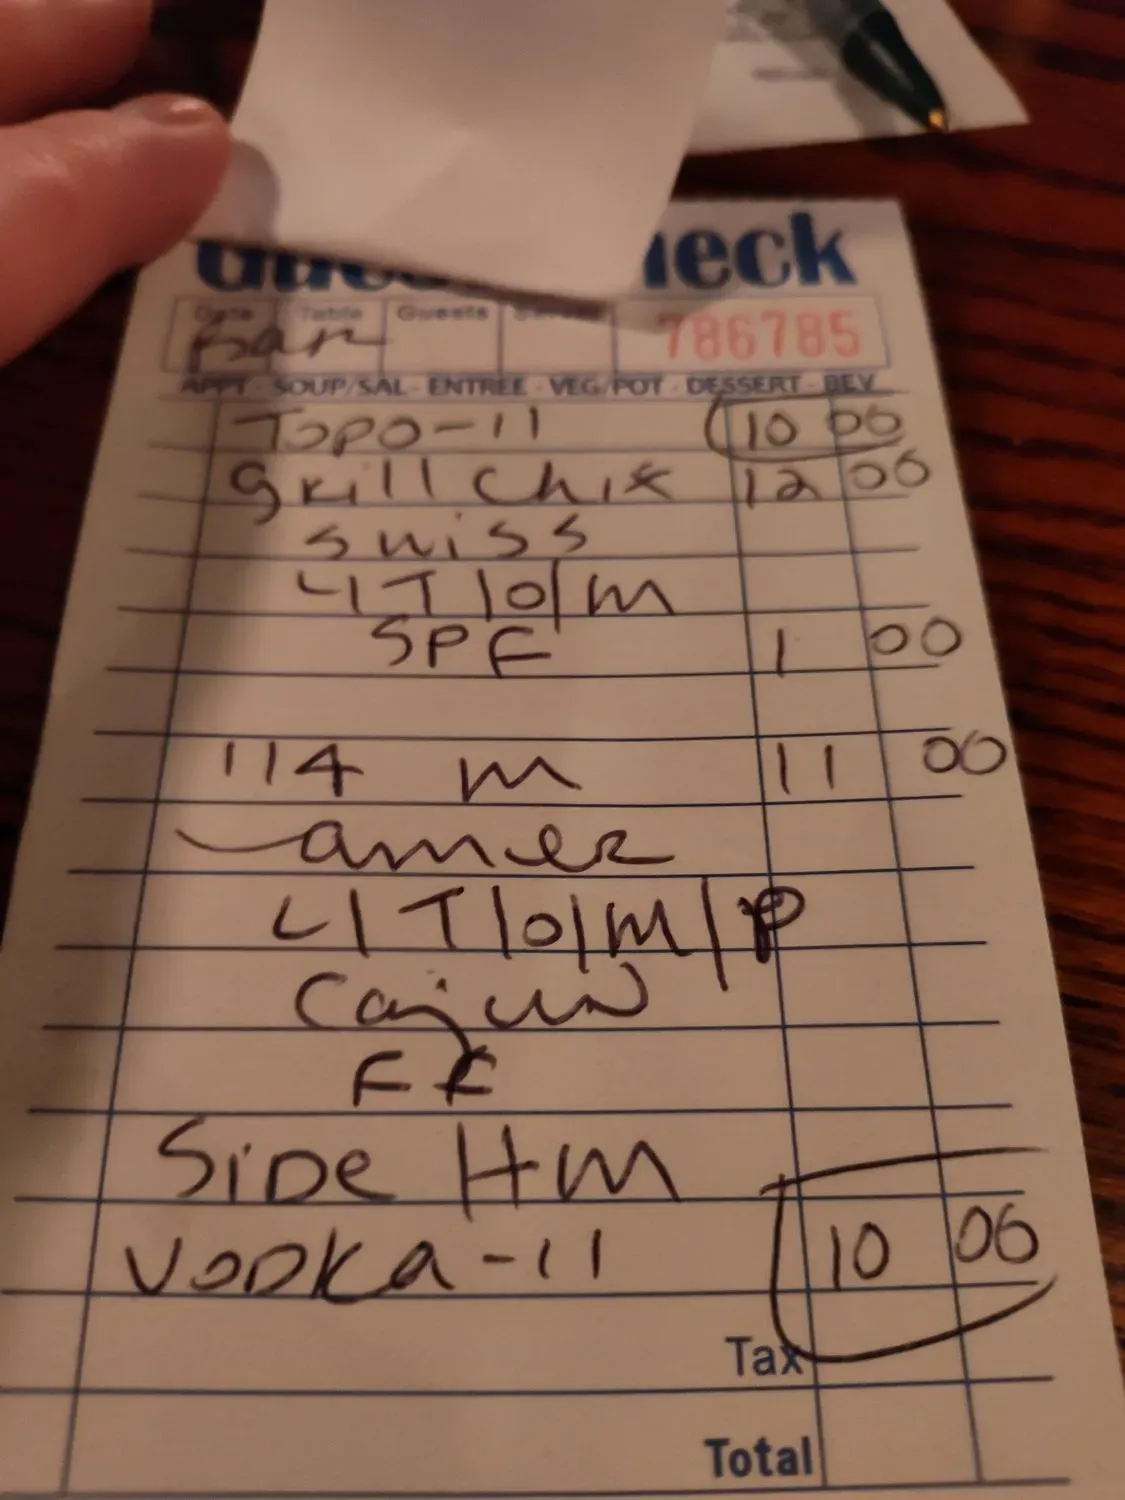 Guest Check
Date Table Guests Server
Bar 786785
APPT - SOUP/SAL - ENTREE - VEG/POT - DESSERT - BEV
Topo-11 10 00
grill chix 12 00
swiss
L/T/o/m
SPF 1 00
114 m 11 00
amer
L/T/o/m/p
Cajun
FF
Side Hm
Vodka-11 10 00
Tax
Total